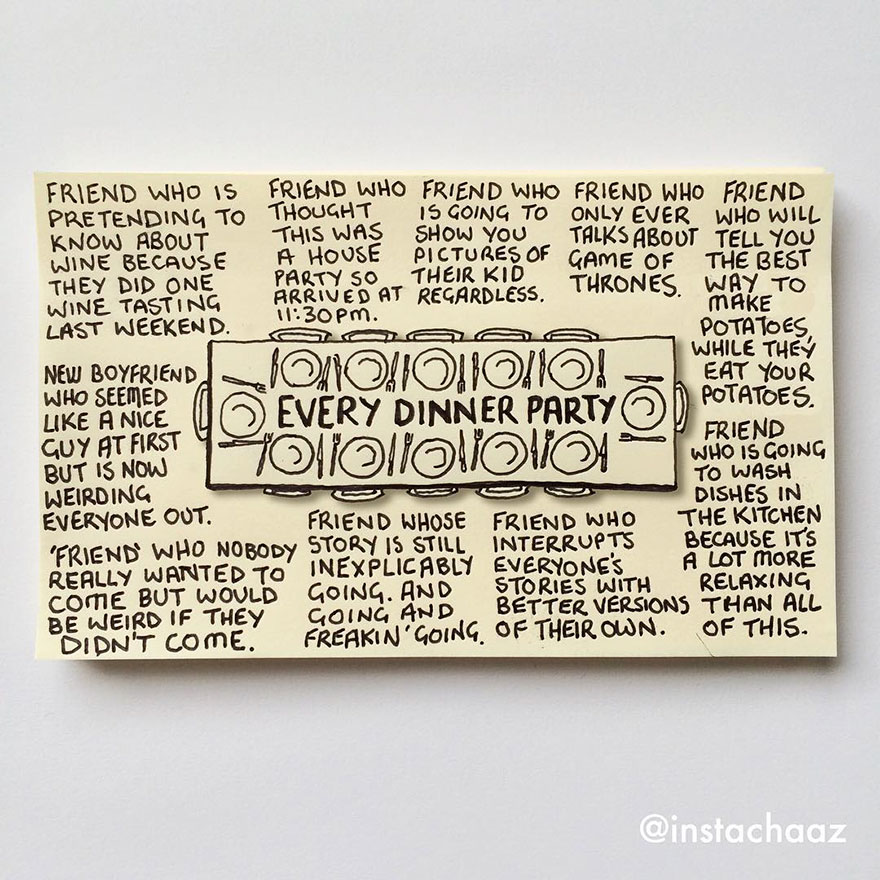 FRIEND WHO IS
PRETENDING TO
KNOW ABOUT
WINE BECAUSE
THEY DID ONE
WINE TASTING
LAST WEEKEND.
FRIEND WHO
THOUGHT
THIS WAS
A HOUSE
PARTY SO
ARRIVED AT
11:30PM.
FRIEND WHO
IS GOING TO
SHOW YOU
PICTURES OF
THEIR KID
REGARDLESS.
FRIEND WHO
ONLY EVER
TALKS ABOUT
GAME OF
THRONES.
FRIEND
WHO WILL
TELL YOU
THE BEST
WAY TO
MAKE
POTATOES,
WHILE THEY
EAT YOUR
POTATOES.
NEW BOYFRIEND
WHO SEEMED
LIKE A NICE
GUY AT FIRST
BUT IS NOW
WEIRDING
EVERYONE OUT.
EVERY DINNER PARTY
FRIEND
WHO IS GOING
TO WASH
DISHES IN
THE KITCHEN
BECAUSE IT'S
A LOT MORE
RELAXING
THAN ALL
OF THIS.
'FRIEND' WHO NOBODY
REALLY WANTED TO
COME BUT WOULD
BE WEIRD IF THEY
DIDN'T COME.
FRIEND WHOSE
STORY IS STILL
INEXPLICABLY
GOING. AND
GOING AND
FREAKIN' GOING.
FRIEND WHO
INTERRUPTS
EVERYONE'S
STORIES WITH
BETTER VERSIONS
OF THEIR OWN.
@instachaaz